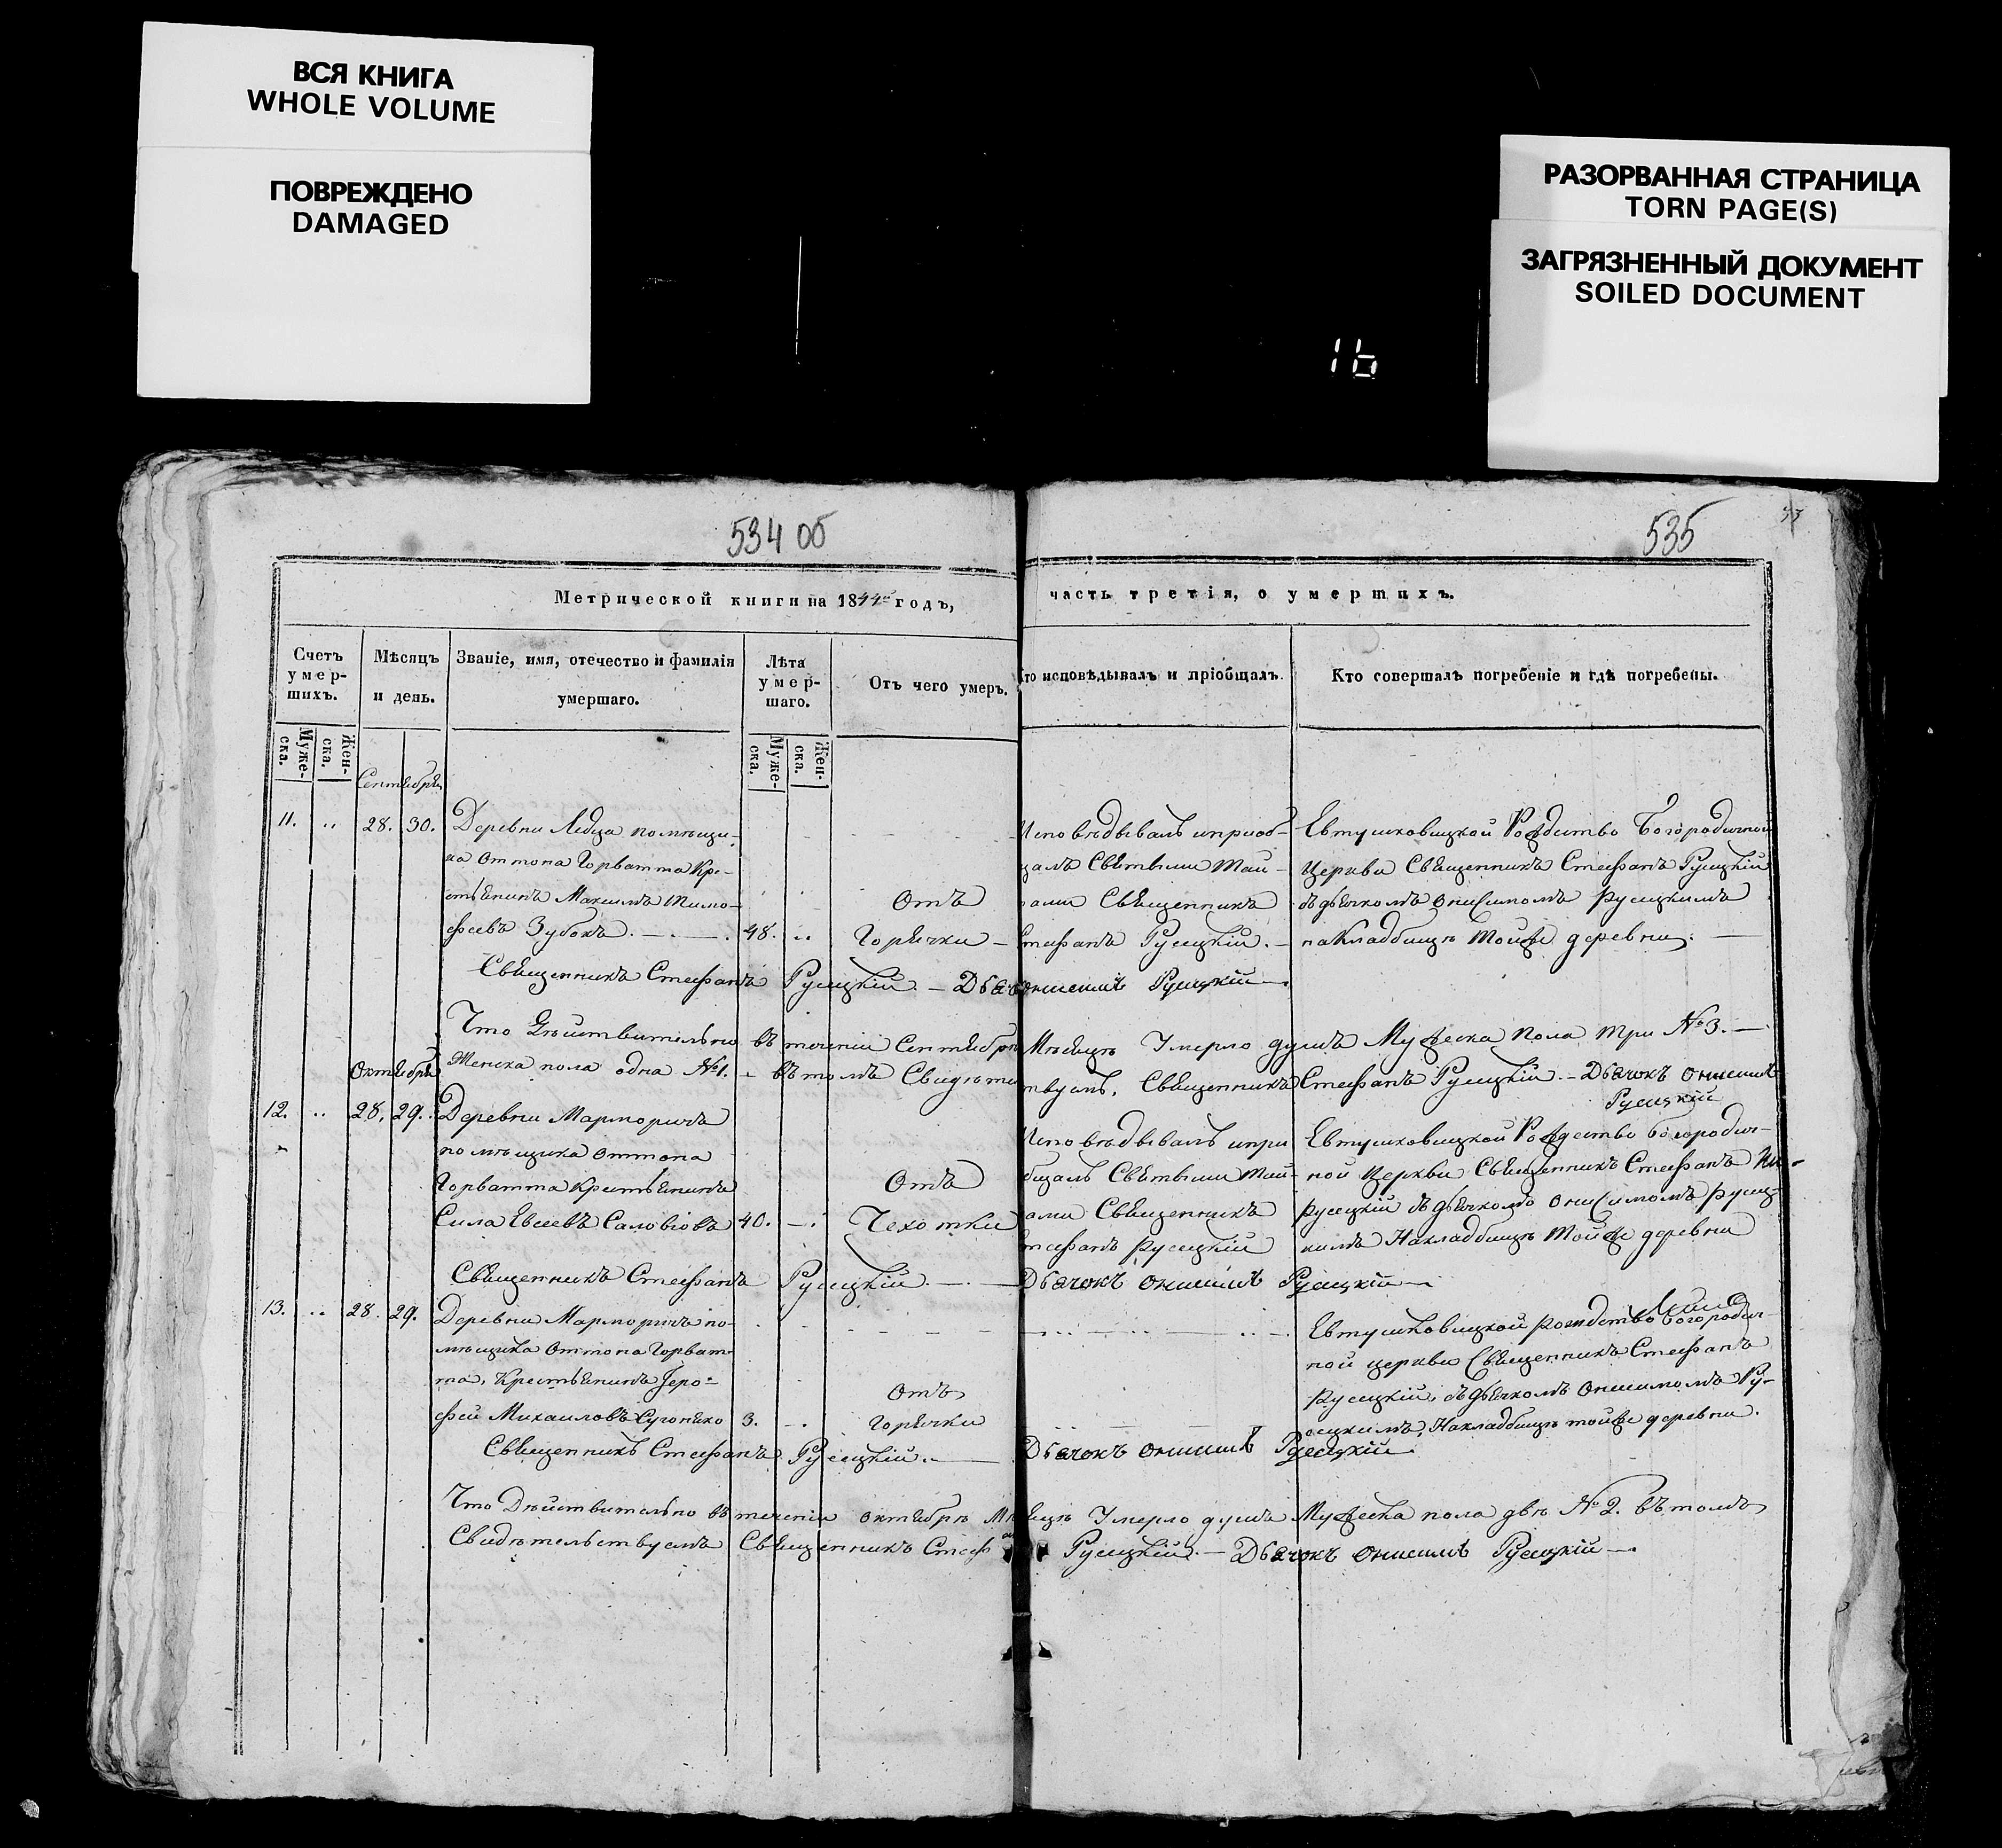 ВСЯ КНИГА
WHOLE VOLUME
ПОВРЕЖДЕНО
DAMAGED
РАЗОРВАННАЯ СТРАНИЦА
TORN PAGE(S)
ЗАГРЯЗНЕННЫЙ ДОКУМЕНТ
SOILED DOCUMENT
16
534 об
535
Метрической книги на 1844й годъ,
часть третія, о умершихъ.
Счетъ умер-шихъ.
Мѣсяцъ и день.
Званіе, имя, отечество и фамилія умершаго.
Лѣта умер-шаго.
Отъ чего умеръ.
то исповѣдывалъ и пріобщалъ.
Кто совершалъ погребеніе и гдѣ погребены.
Муже-ска.
Жен-ска.
Муже-ска.
Жен-ска.
Сентября
11. 28. 30. Деревни Ледца помѣщи-
ка Оттона Горватта Кре-
стьянинъ Максимъ Тимо-
феевъ Зубокъ. 48.
Отъ
Горячки
Исповѣдывалъ и приоб-
щалъ Святыми Тай-
нами Священникъ
Стефанъ Русецкій.
Евтушковицкой Рождество Богородичной
Церкви Священникъ Стефанъ Русецкій
съ дьячкомъ Онисимомъ Русецкимъ
на Кладбищѣ тойже деревни.
Священникъ Стефанъ Русецкій. — Дьячокъ Онисимъ Русецкій
Что Дѣйствительно въ теченіи Сентября Мѣсяцѣ Умерло душъ Мужеска пола три №3.
Женска пола одна №1. въ томъ Свидѣтельствуемъ, Священникъ Стефанъ Русецкій. — Дьячокъ Онисимъ
Русецкій
Октября
12. 28. 29. Деревни Марморичъ
помѣщика Оттона
Горватта Крестьянинъ
Сила Евсеевъ Саловіовъ 40.
Отъ
Чехотки
Исповѣдывалъ и при
общалъ Святыми Тай-
нами Священникъ
Стефанъ Русецкій
Евтушковицкой Рождество богородич-
ной Церкви Священникъ Стефанъ
Русецкій съ дьячкомъ Онисимомъ Русец-
кимъ На кладбищѣ тойже деревни
Священникъ Стефанъ Русецкій. — Дьячокъ Онисимъ Русецкій
13. 28. 29. Деревни Марморичъ по-
мѣщика Оттона Горват-
та, Крестьянинъ Іеро-
фей Михаиловъ 3.
Отъ
Горячки
Евтушковицкой рождество Богородич-
ной церкви Священникъ Стефанъ
Русецкій, съ дьячкомъ Онисимомъ Ру-
сецкимъ, На кладбищѣ тойже деревни.
Священникъ Стефанъ Русецкій. — Дьячокъ Онисимъ Русецкій
Что Дѣйствительно въ теченіи Октября Мѣсяцѣ Умерло душъ Мужеска пола двѣ №2. въ томъ
Свидѣтельствуемъ Священникъ Стефанъ Русецкій. — Дьячокъ Онисимъ Русецкій